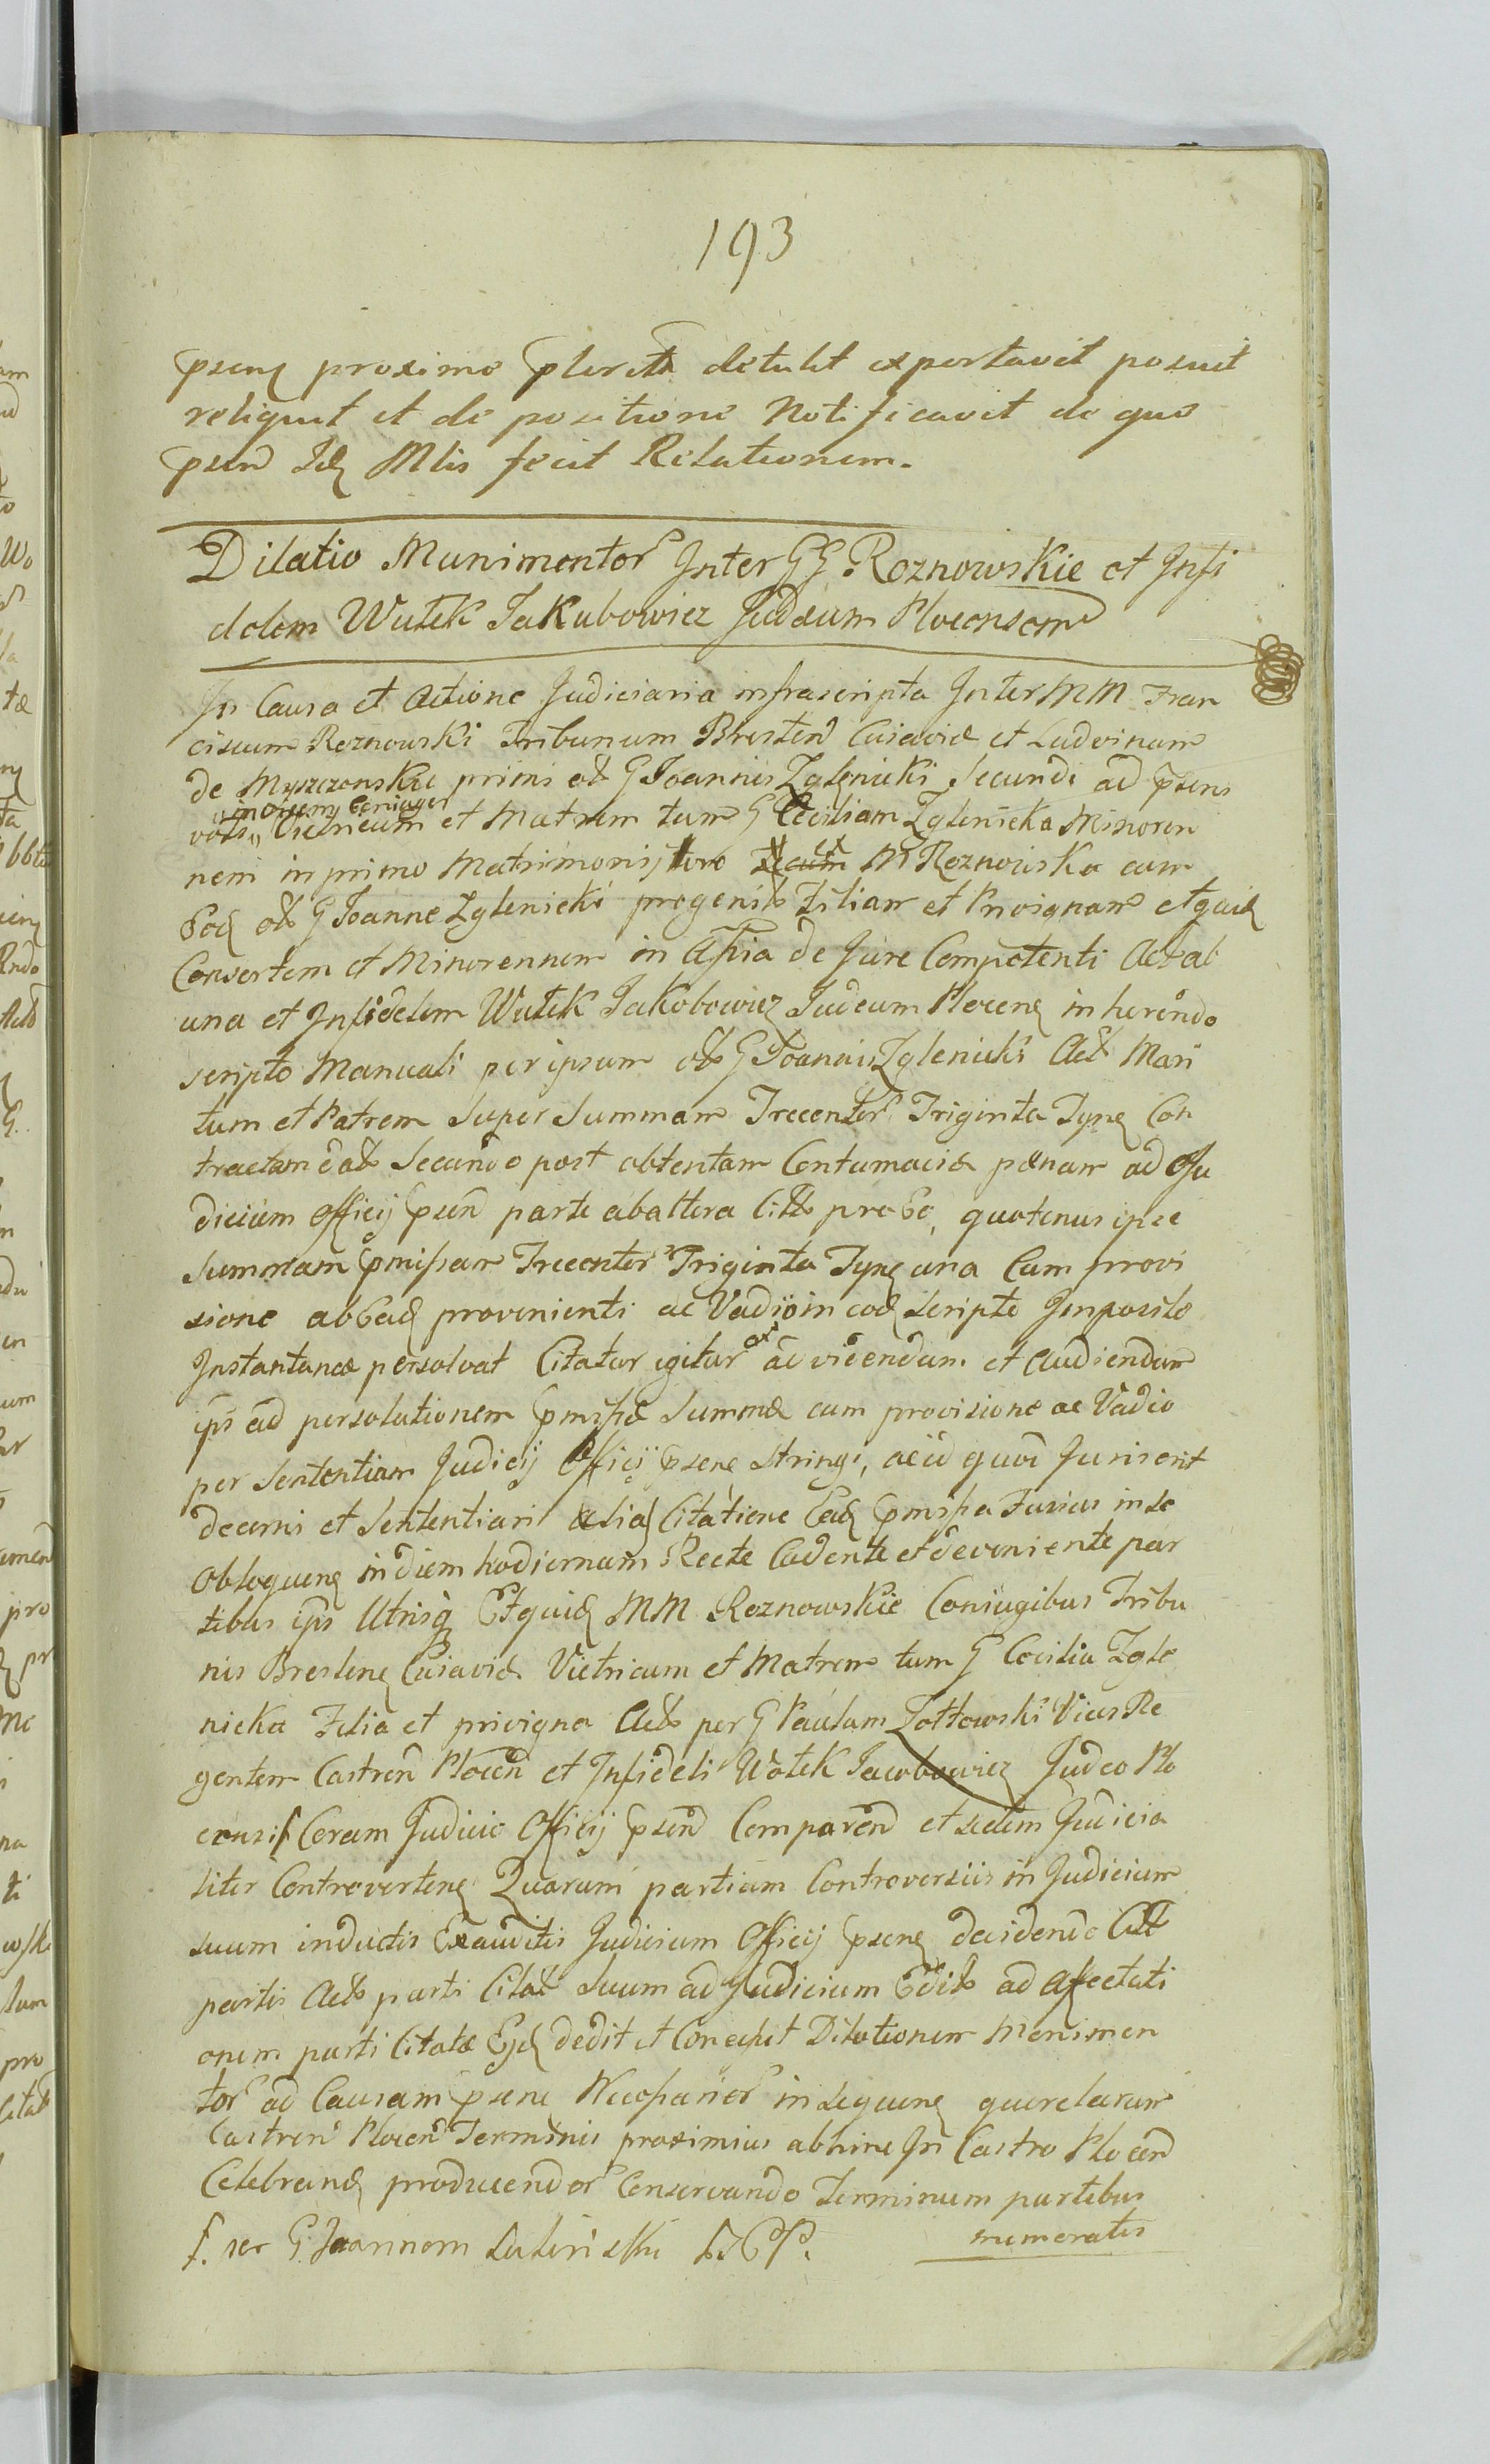 193
psens proximo detulit exportavit posuit
reliquit et de positione Notificavit de quo
psen Mlis fecit Relationem.
Dilatio Munimentor Inter GG. Roznowskie et Infi
delem Wulek Jakubowicz Judæum Plocensem
In Causa et Actione Judiciaria infrascripta Inter MM Fran
ciscum Roznowski Tribunum Bresten Cuiaviæ et Ludvinam
de Myszczonskie primi ol G Joannis Zglenicki Secundi ad psens
inorum Coniuges
voti Vitricum et Matrem tum G Ceciliam Zglenicka Minoren
nem in primo Matrimonij toro M Roznowska cum
Eod ol G Joanne Zglenicki progenit Filiam et Privignam etquid
Consortem et Minorennem in Asstia de Jure Competenti Act ab
una et Infidelem Wulek Jakobowicz Judeum Plocens inherendo
scripto Manuali per ipsum ol G Joannis Zglenicki Act Mari
tum et Patrem Super Summam Trecentor Triginta Tynf Con
tractam dat Secundo post obtentam Contumaciæ pænam ad Ju
dicium Officij psen parte ab altera Citt pro Eo, quatenus ipse
Summam pmissam Trecentor Triginta Tynf una Cum provi
sione ab Ead provenienti ac Vadio in eod scripto Imposito
Instantanee persolvat Citatur igitur ad videndum et Audiendum
ips ad persolutionem pmissæ Summæ cum provisione ac Vadio
per Sententiam Judicij Officij psens stringi, ac id quod Juris erit
decerni et Sententiari alias Citatione Ead pmissa Fusius in se
Obloquens in diem hodiernam Recte Cadente et deveniente par
tibus ips Utrisq Etquid MM Roznowskie Coniugibus Tribu
nis Brestens Cuiaviæ Vitricum et Matrem tum G Cecilia Zgle
nicka Filia et privigna Act per G Paulum Zottowski Vices Re
gentem Castren Plocen et Infideli Wolek Jacobowicz Judeo Plo
censi Coram Judicio Officij psen Comparend et secum Judicia
liter Controvertens Quarum partium Controversiis in Judicium
suum inductis Exauditis Judicium Officij psens decidendo Citt
partis Act parti Citat Suum ad Judicium Edit ad Affectati
onem parti Citatæ Ejd dedit et Concessit Dilationem Munimen
tor ad Causam psens Necessarior in sequens querelarum
Castren Plocen Terminis proximius abhinc In Castro Plocen
Celebrand producendor Conservando Terminum partibus
numeratis
f. rec G. Joannem